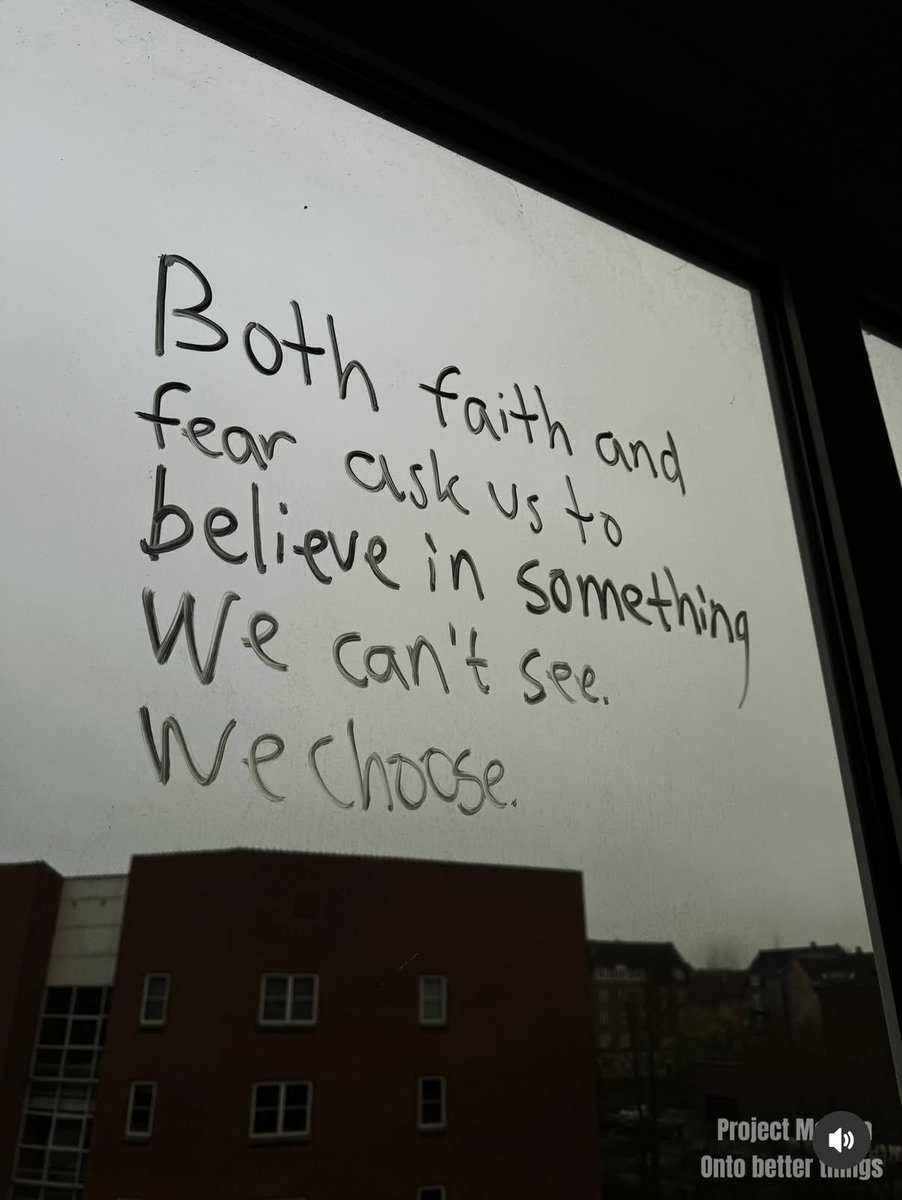 Both faith and
fear ask us to
believe in something
We can't see.
We choose.
Project
Onto better